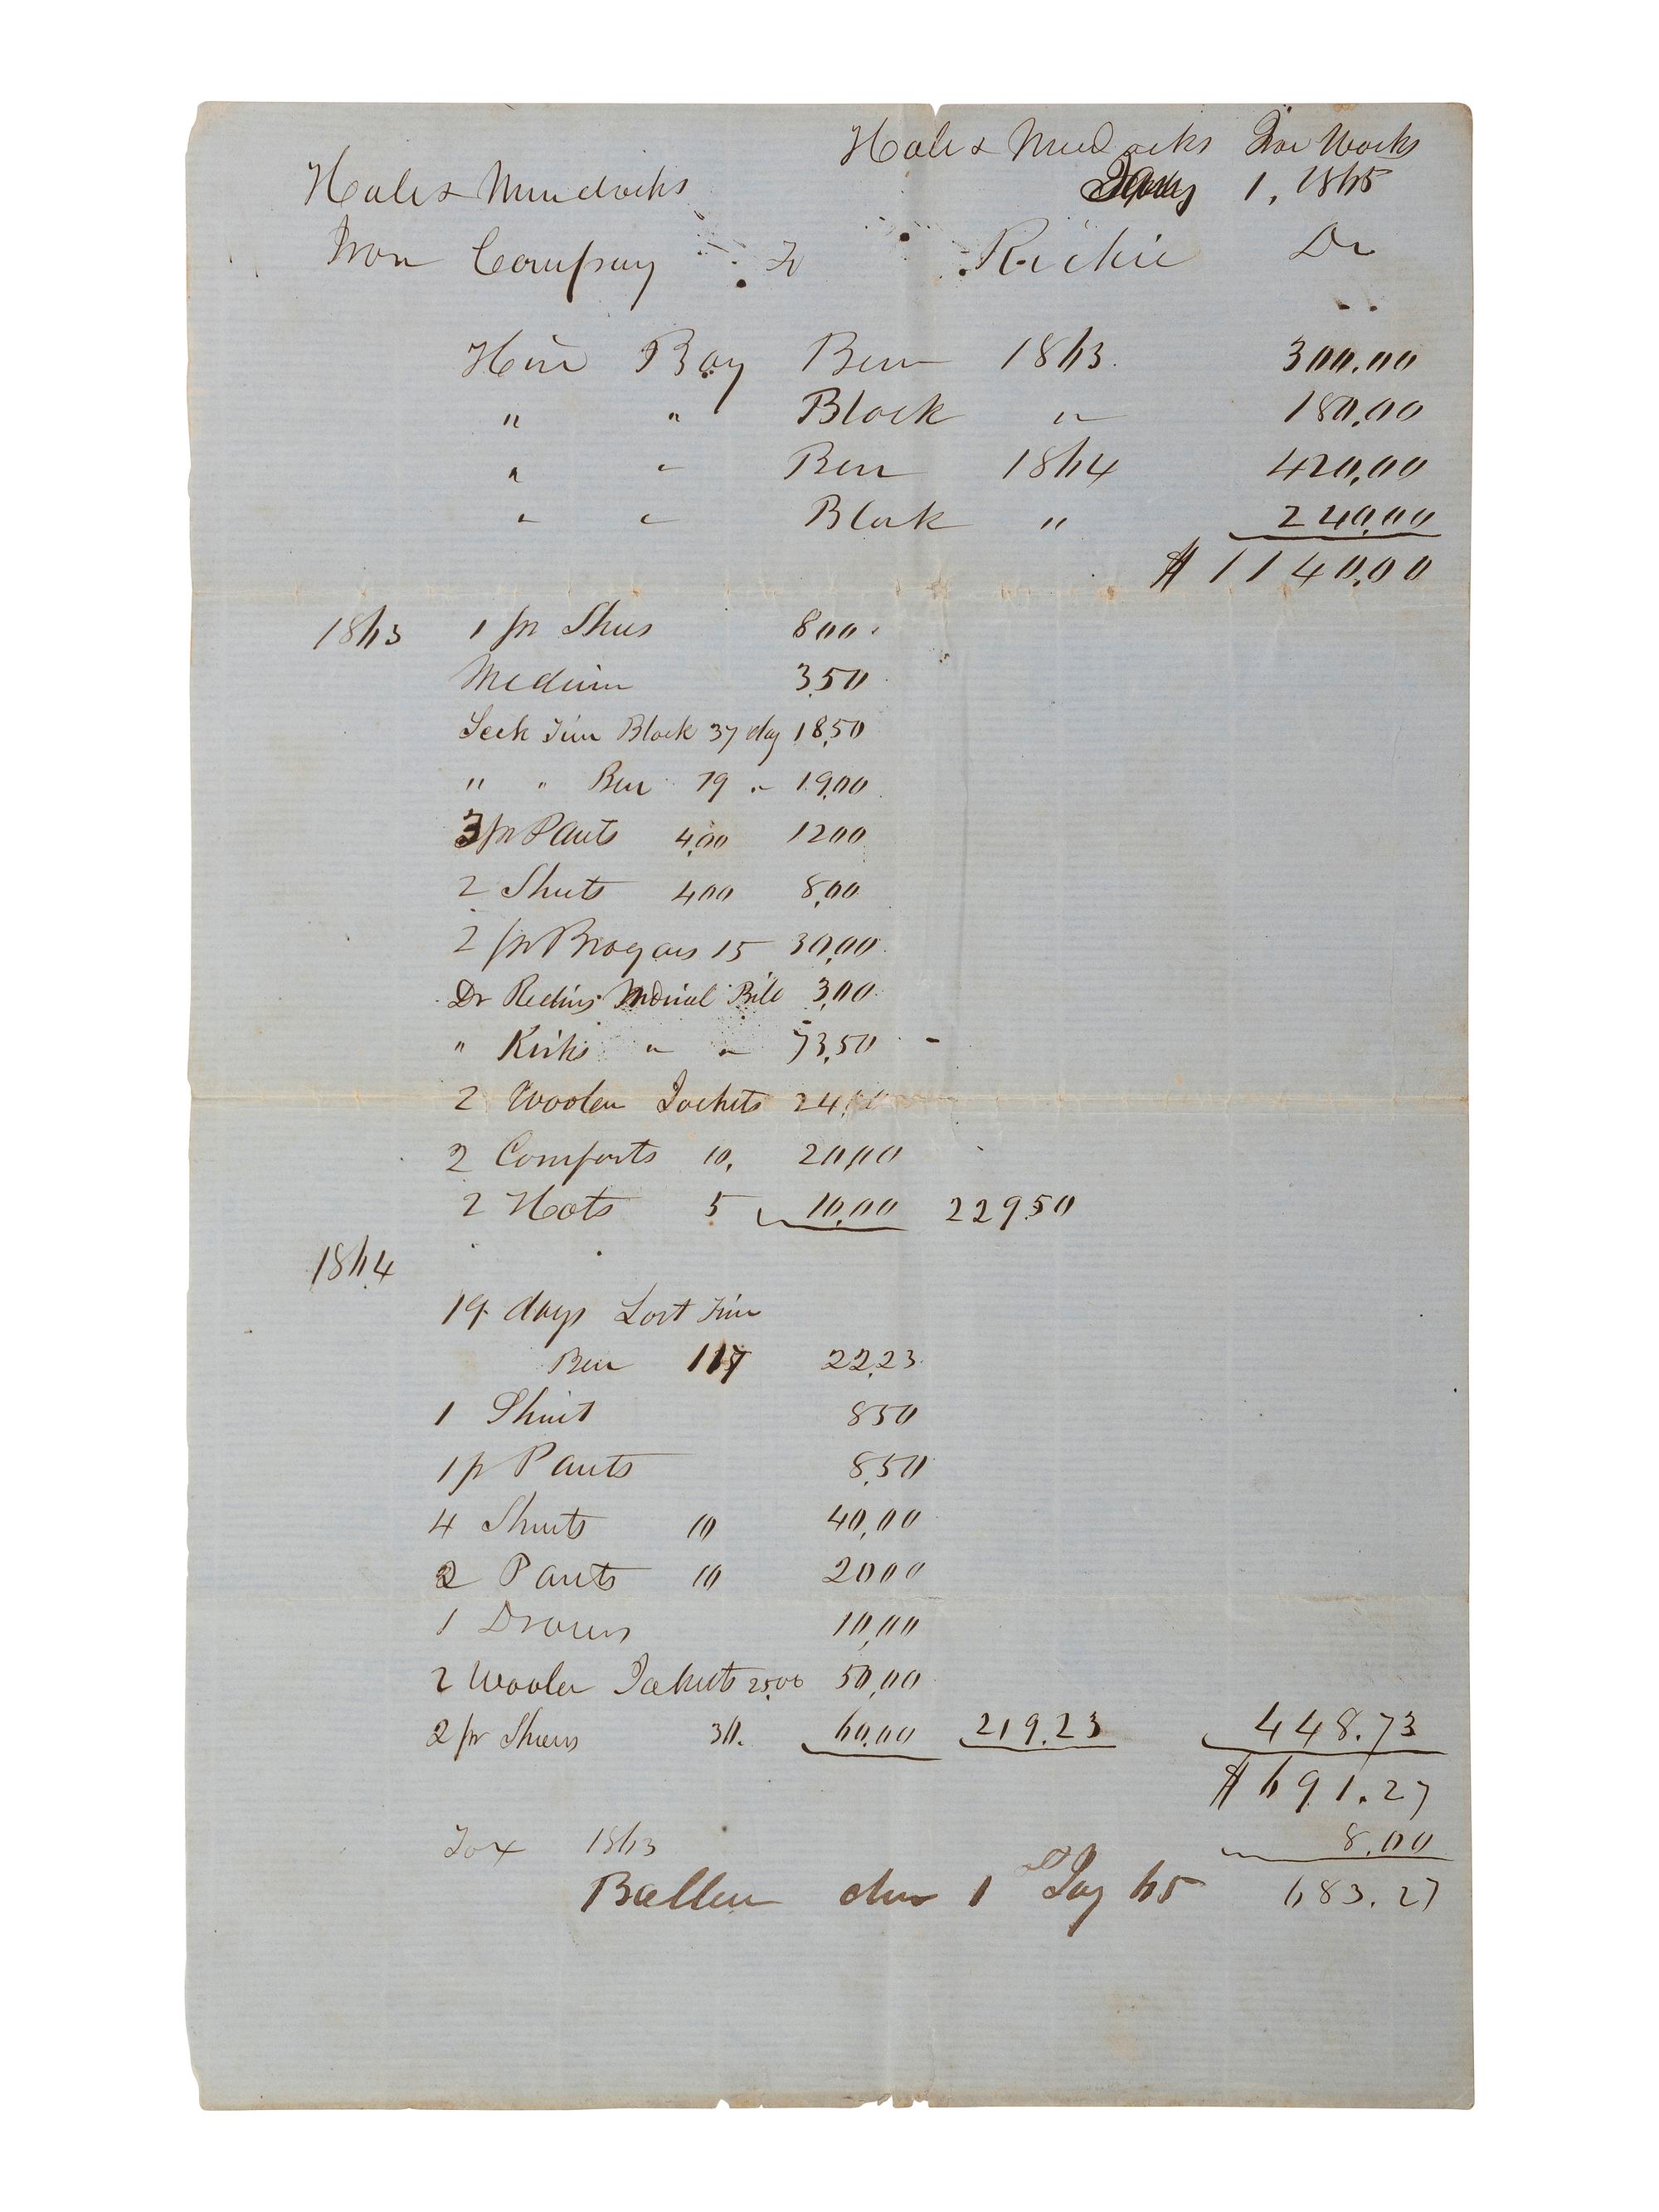 Hale & Murdocks Iron Works
Jany 1, 1865
Hale & Murdocks
Iron Company To Richie Dr
Hire Boy Ben 1863. 300.00
" " Block " 180.00
" " Ben 1864 420.00
" " Block " 240.00
$1140.00
1863 1 pr Shus 800
Medium 3.50
Seek Time Block 37 day 18.50
" " Ben 19 " 19.00
3 pr Pants 4.00 1200
2 Shirts 400 8.00
2 pr Brogans 15 30.00
Dr Medical Bill 3.00
" Kirks " " 73.50
2 Woolen Jackets 24.00
2 Comforts 10. 20.00
2 Hats 5 10.00 229.50
1864
19 days Lost Time
Ben 117 22.23
1 Shirt 850
1 pr Pants 8.50
4 Shirts 10 40.00
2 Pants 10 2000
1 Drawers 10.00
2 Woolen Jackets 25.00 50.00
2 pr Shoes 30. 60.00 219.23 448.73
$691.27
Tax 1863 8.00
Ballen due 1st Jay 65 683.27